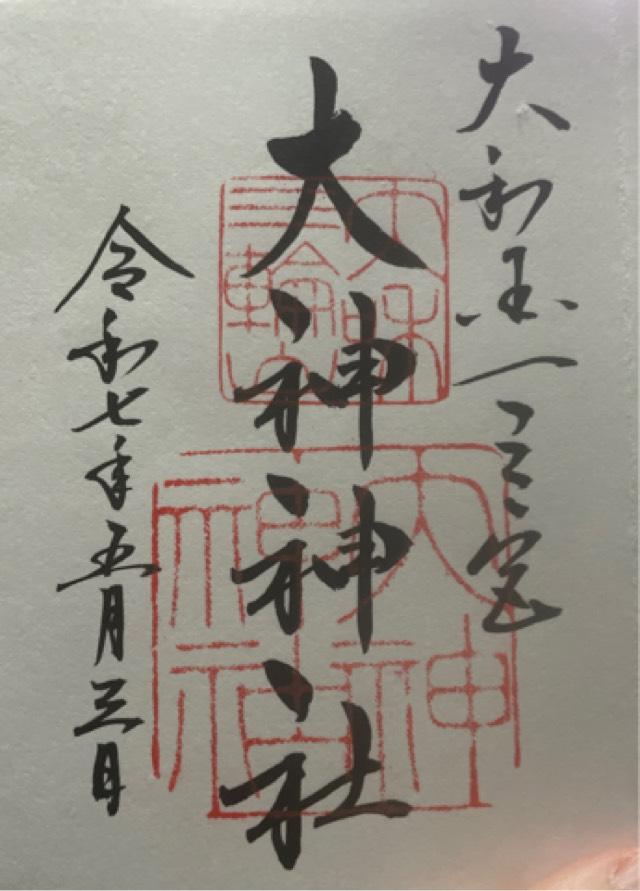 大和国一之宮
大神神社
令和七年五月三日
三輪
大神神社